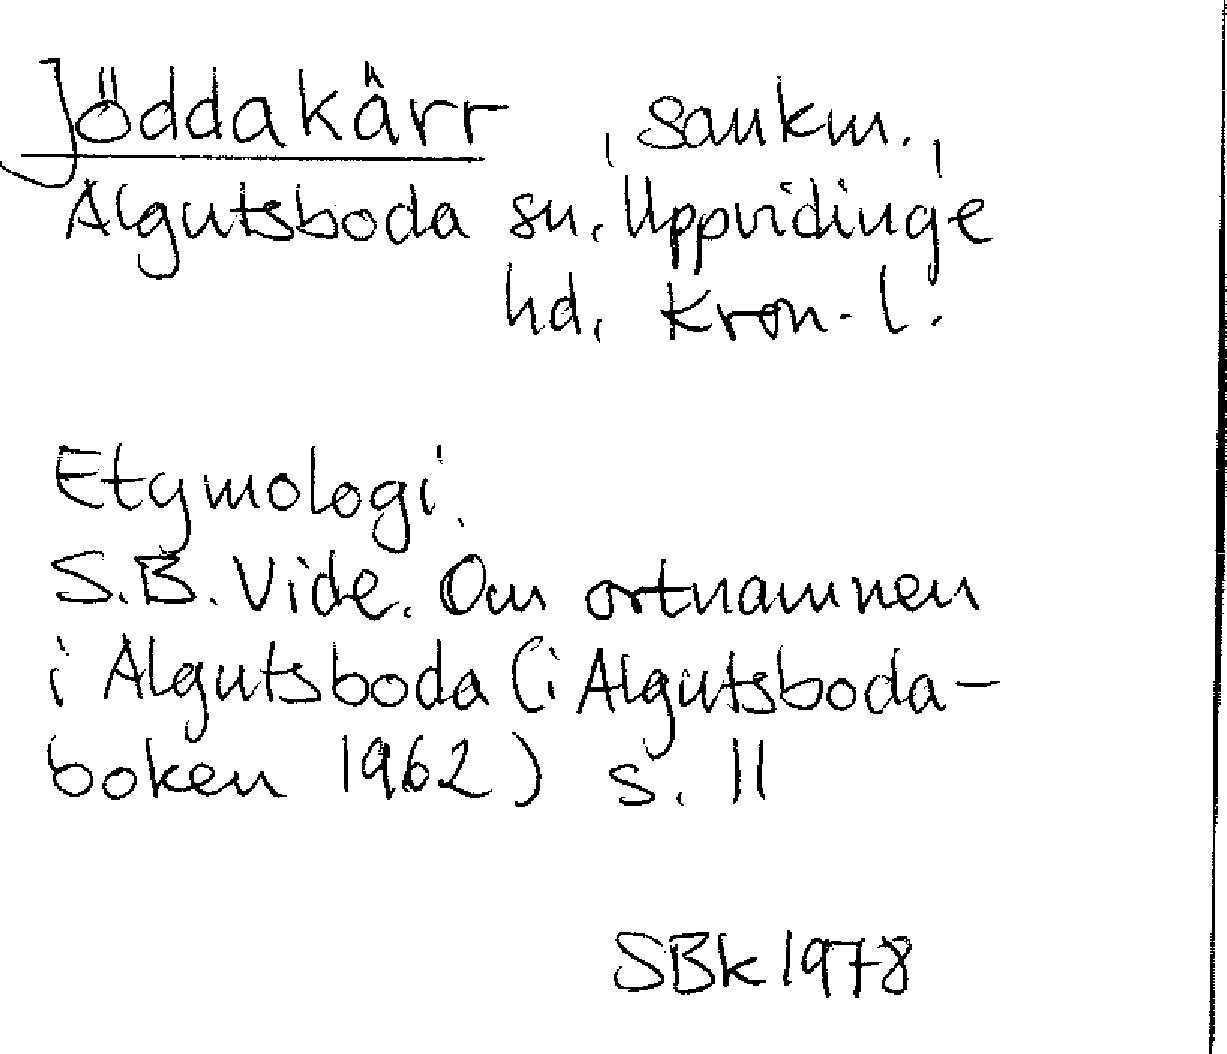 Jöddakärr, sankm.,
Algutsboda sn, Uppvidinge
hd, Kron. l.
Etymologi.
S.B. Vide. Om ortnamnen
i Algutsboda (i Algutsboda-
boken 1962) s. 11
SBk 1978